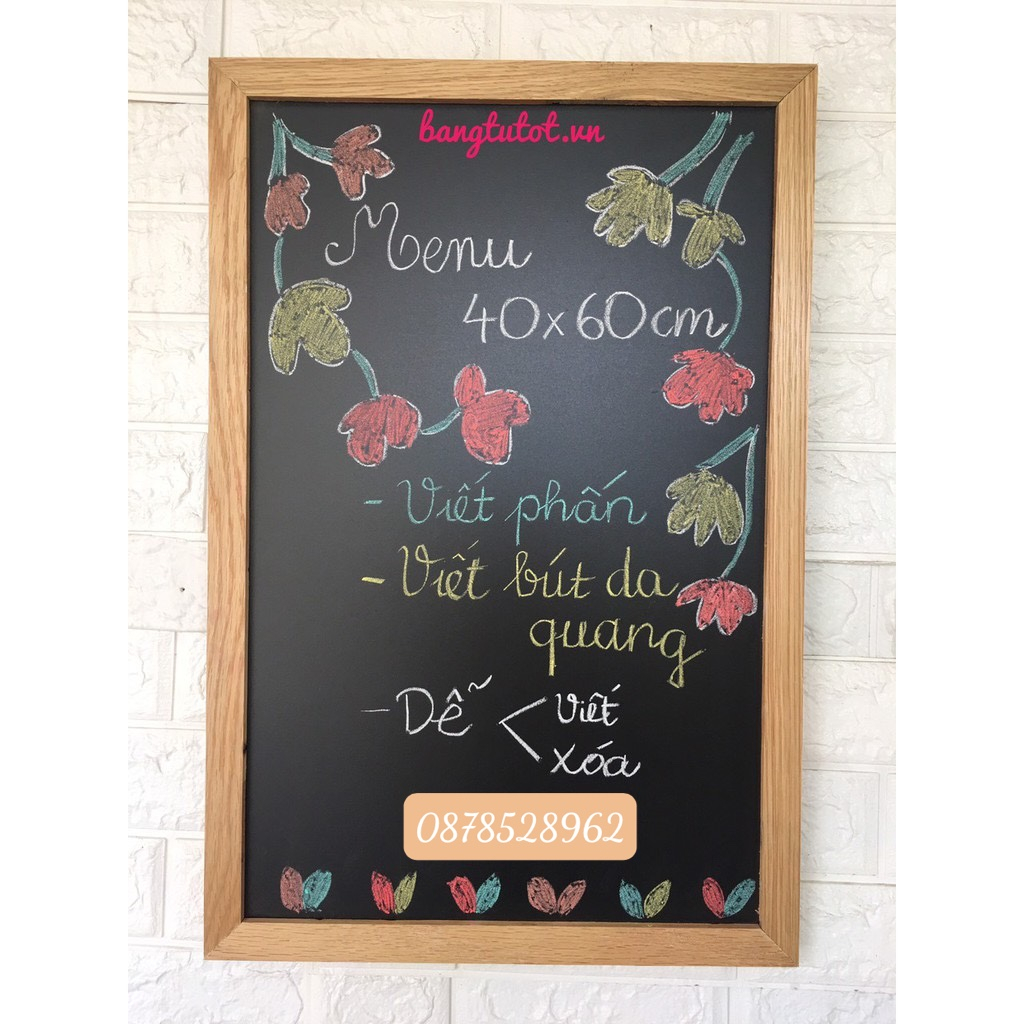 bangtutot.vn
Menu
40x60cm
- Viết phấn
- Viết bút da
quang
- Dễ < Viết
Xóa
0878528962